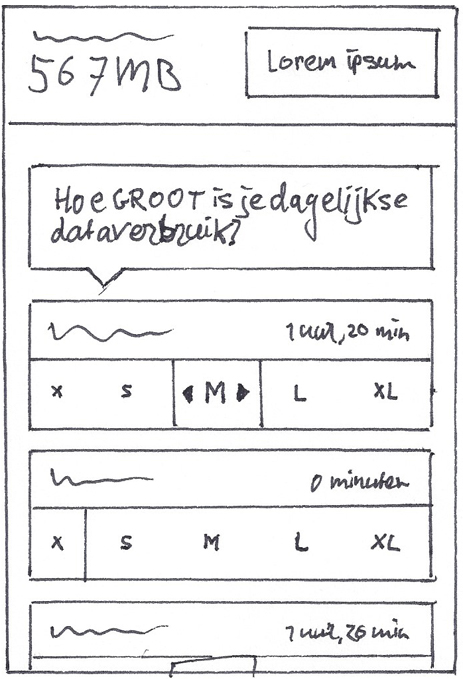 567MB
Lorem ipsum
Hoe GROOT is je dagelijkse
dataverbruik?
1 uur, 20 min
x S M L XL
0 minuten
x S M L XL
1 uur, 26 min